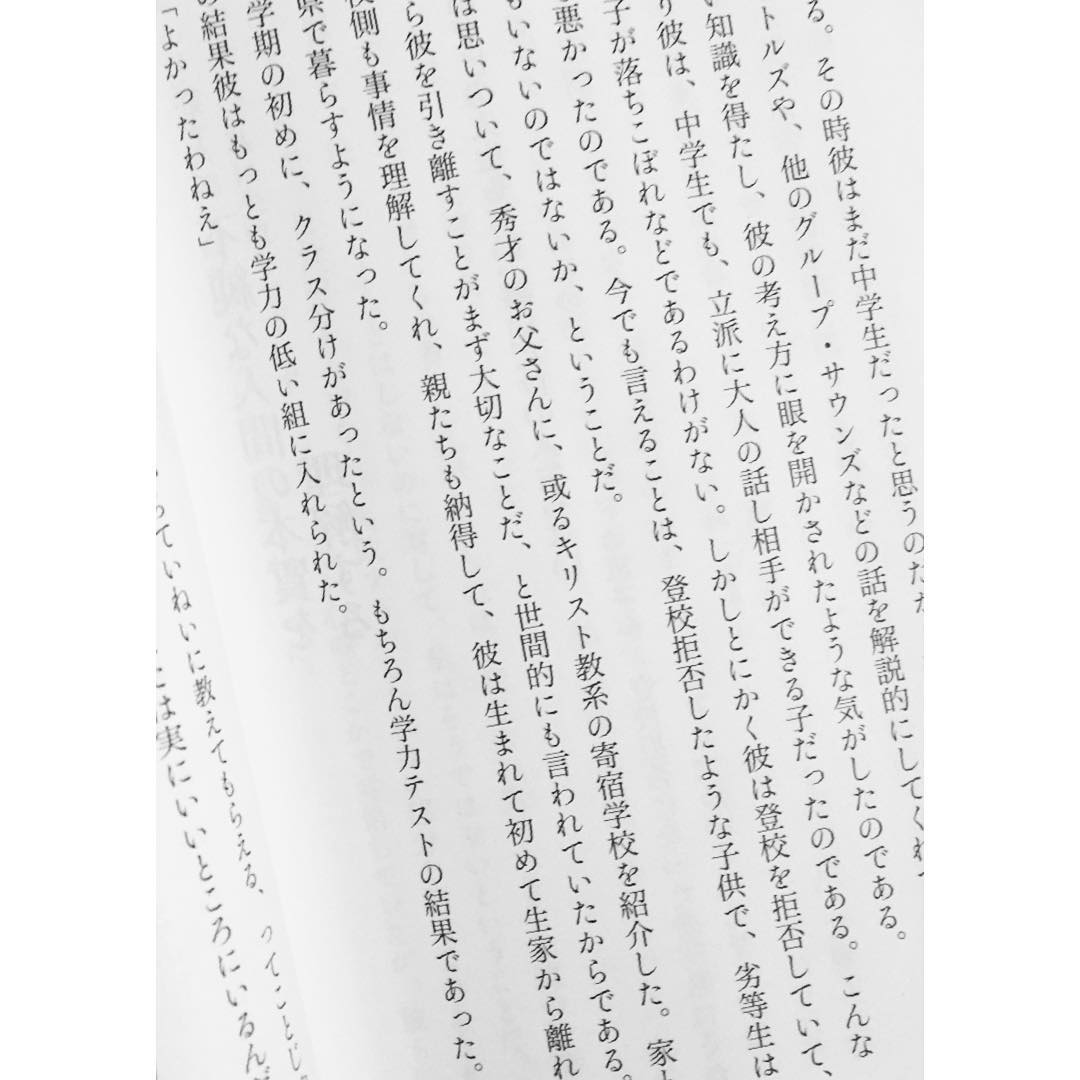 る。その時彼はまだ中学生だったと思うのだが
トルズや、他のグループ・サウンズなどの話を解説的にしてくれ
い知識を得たし、彼の考え方に眼を開かされたような気がしたのである。
り彼は、中学生でも、立派に大人の話し相手ができる子だったのである。こんな
子が落ちこぼれなどであるわけがない。しかしとにかく彼は登校を拒否していて、
悪かったのである。今でも言えることは、登校拒否したような子供で、劣等生は
もいないのではないか、ということだ。
は思いついて、秀才のお父さんに、或るキリスト教系の寄宿学校を紹介した。家
ら彼を引き離すことがまず大切なことだ、と世間的にも言われていたからである。
校側も事情を理解してくれ、親たちも納得して、彼は生まれて初めて生家から離れ
県で暮らすようになった。
学期の初めに、クラス分けがあったという。もちろん学力テストの結果であった。
の結果彼はもっとも学力の低い組に入れられた。
「よかったわねえ」
っていねいに教えてもらえる、
は実にいいところにいるんだ